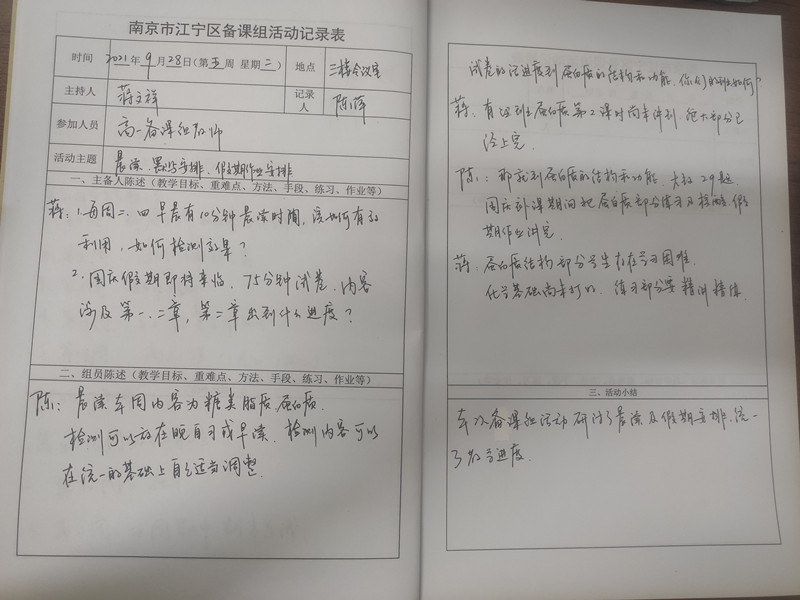 南京市江宁区备课组活动记录表
时间 2021年9月28日(第五周 星期二) 地点 三楼会议室
主持人 蒋文祥 记录人 陈萍
参加人员 高一备课组教师
活动主题 晨读、默写安排、假期作业安排
一、主备人陈述(教学目标、重难点、方法、手段、练习、作业等)
蒋:1.每周二、四早晨有10分钟晨读时间,该如何有效
利用,如何检测效果?
2.国庆假期即将来临,75分钟试卷,内容
涉及第一、二章,第二章出到什么进度?
二、组员陈述(教学目标、重难点、方法、手段、练习、作业等)
陈:晨读本周内容为糖类脂质、蛋白质.
检测可以放在晚自习或早读,检测内容可以
在统一的基础上自己适当调整.
试卷的话进度到蛋白质的结构和功能,你们的班如何?
蒋:有 班主蛋白质第2课时尚未讲到,绝大部分已
经上完.
陈:那就到蛋白质的结构和功能,大约29题.
国庆补课期间把蛋白质部分练习及校 假
期作业讲完.
蒋:蛋白质结构部分学生存在学习困难.
化学基础尚未打好,练习部分要精讲精练.
三、活动小结
本次备课组活动研讨了晨读及假期安排,统一
了教学进度.